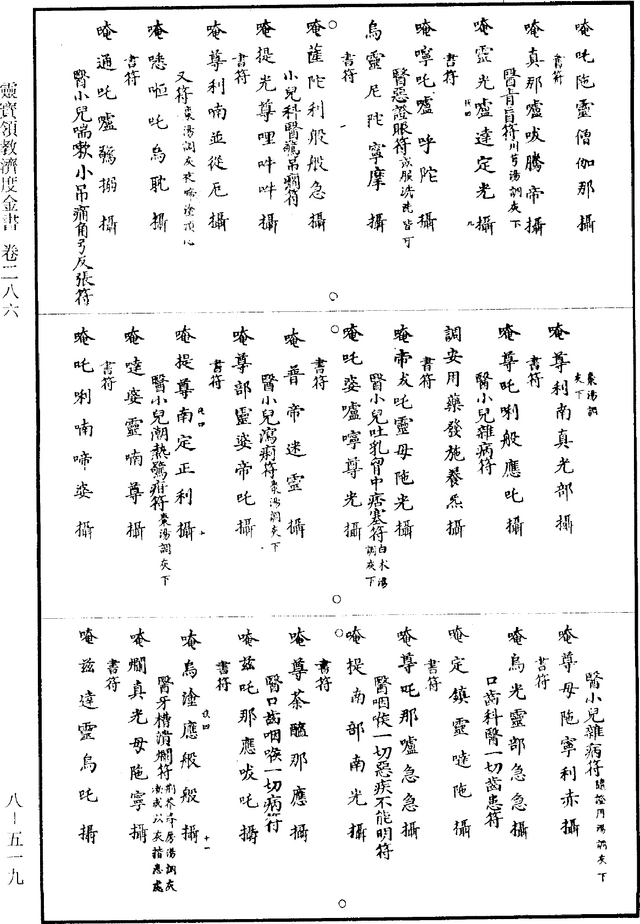 唵吒陁靈僧伽那　攝
書符
唵真那嚧㕹騰帝攝
醫青盲符川芎湯調灰下
唵靈光嚧達定光　攝
書符
唵嚀吒嚧呼陀　攝
醫惡證眼符或服洗洗皆可
烏靈尼陀寧摩　攝
書符
唵薩陀利般般急　攝
小兒科醫驚吊癇符
唵提光尊哩吽吽　攝
書符
唵尊利喃並從厄　攝
又符棗湯調灰救喃塗頂心
唵㗭啞吒烏耽　攝
書符
唵通吒嚧鷄搦　攝
醫小兒喘嗽小吊痛角弓反張符
棗湯調灰下
唵尊利南真光部　攝
書符
唵尊吒唎般應吒　攝
醫小兒雜病符
調安用藥發施養炁　攝
書符
唵帝犮吒靈母陁光　攝
醫小兒吐乳胷中痞塞符白木湯調灰下
唵吒娑嚧寧尊光　攝
書符
唵普帝迷靈　攝
醫小兒瀉痢符棗湯調灰下
唵尊部靈娑帝吒　攝
書符
唵提尊南定正利　攝
醫小兒潮熱驚疳符棗湯調灰下
唵噠娑靈喃尊　攝
書符
唵吒唎喃啼娑　攝
醫小兒雜病符隨證用湯調灰下
唵尊母陁寧利赤　攝
書符
唵烏光靈部急急　攝
口齒科醫一切齒患符
唵定鎮靈噠陁　攝
書符
唵尊吒那嚧急急　攝
醫咽喉一切惡疾不能明符
唵提南部南光　攝
書符
唵尊荼醯那應　攝
醫口齒咽喉一切病符
唵茲吒那應㕹吒　攝
書符
唵烏塗應般般　攝
醫牙槽潰爛符荊芥防湯調灰漱或以灰揩患處
唵爛真光母陁寧　攝
書符
唵茲達靈烏吒　攝
靈寶領教濟度金書　卷二八六
八－五一九